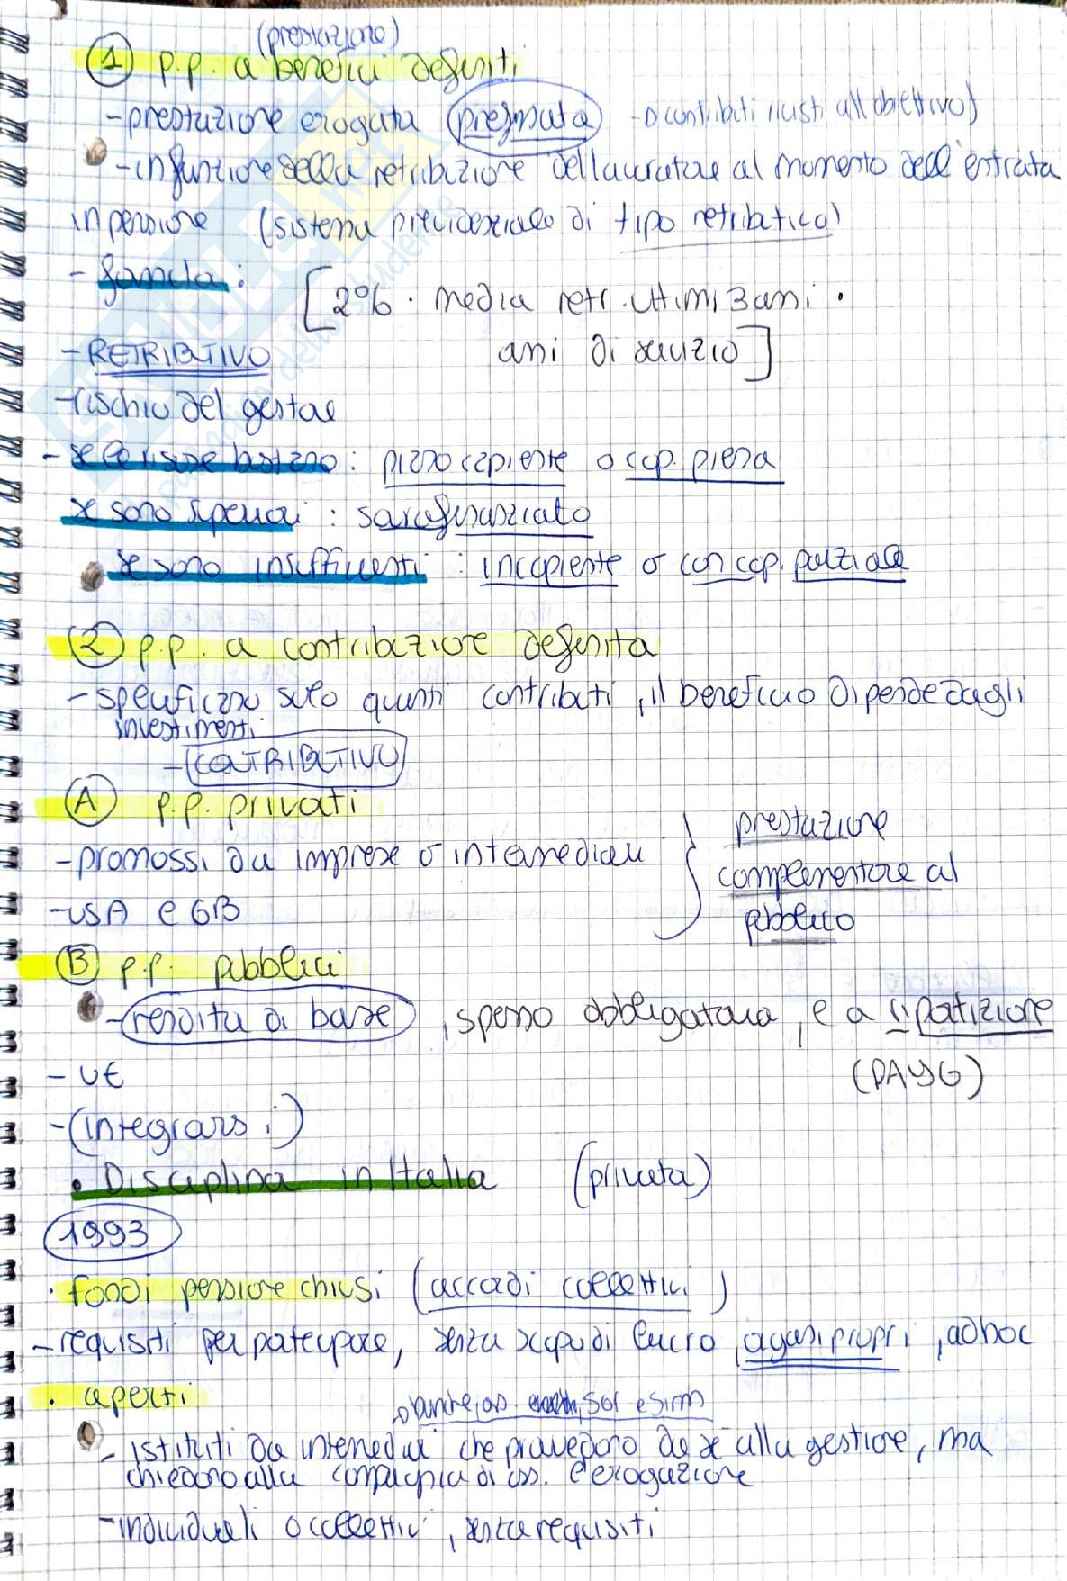 (prestazione)
① p.p. a benefici definiti
- prestazione erogata (prefissata) → contributi giusti all'obiettivo)
- in funzione della retribuzione del lavoratore al momento dell'entrata
in pensione (sistema previdenziale di tipo retributivo)
- formula: [2% · media retr. ultimi 3 anni ·
- RETRIBUTIVO anni di servizio]
- rischio del gestore
- se le risorse bastano: piano capiente o cap. piena
se sono superiori: sovrafinanziato
se sono insufficienti: incapiente o con cap. parziale
② p.p. a contribuzione definita
- specificano solo quanti contributi, il beneficio dipende dagli
investimenti
- CONTRIBUTIVO
Ⓐ p.p. privati
- promossi da imprese o intermediari } prestazione
complementare al
- USA e GB pubblico
Ⓑ p.p. pubblici
- rendita di base, spesso obbligatoria, e a ripartizione
- UE (PAYG)
- (integrarsi)
• Disciplina in Italia (privata)
1993
· fondi pensione chiusi (accordi collettivi)
- requisiti per partecipare, senza scopo di lucro, organi propri, ad hoc
· aperti
→ banche, ass., sgr e sim
- istituiti da intermediari che provvedono da sé alla gestione, ma
chiedono alla compagnia di ass. l'erogazione
- individuali o collettivi, senza requisiti